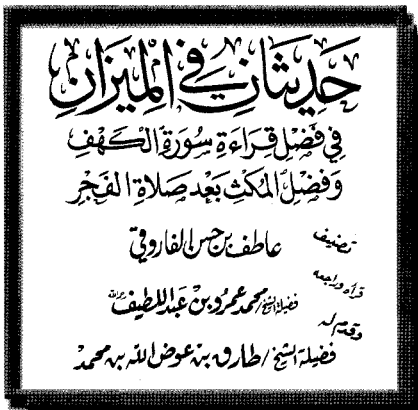 حَدِيثَانِ فِي الْمِيزَانِ
فِي فَضْلِ قِرَاءَةِ سُورَةِ الْكَهْفِ
وَفَضْلِ الْمُكْثِ بَعْدَ صَلَاةِ الْفَجْرِ
تصنيف
عاطف بن حسن الفاروقي
قرأه وراجعه
فضيلة الشيخ/ محمد عمرو بن عبد اللطيف
وقدم له
فضيلة الشيخ/ طارق بن عوض الله بن محمد